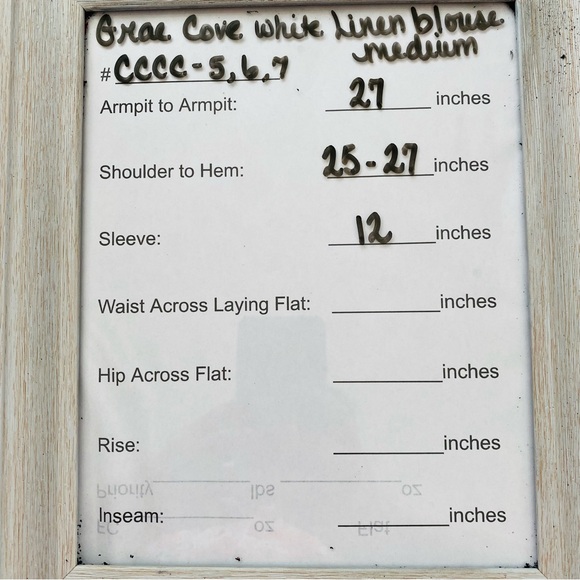 Grae Cove white Linen blouse
medium
# CCCC - 5, 6, 7
Armpit to Armpit: 27 inches
Shoulder to Hem: 25-27 inches
Sleeve: 12 inches
Waist Across Laying Flat: ______ inches
Hip Across Flat: ______ inches
Rise: ______ inches
Priority ______ lbs ______ oz
Inseam: ______ inches
FC ______ oz Flat